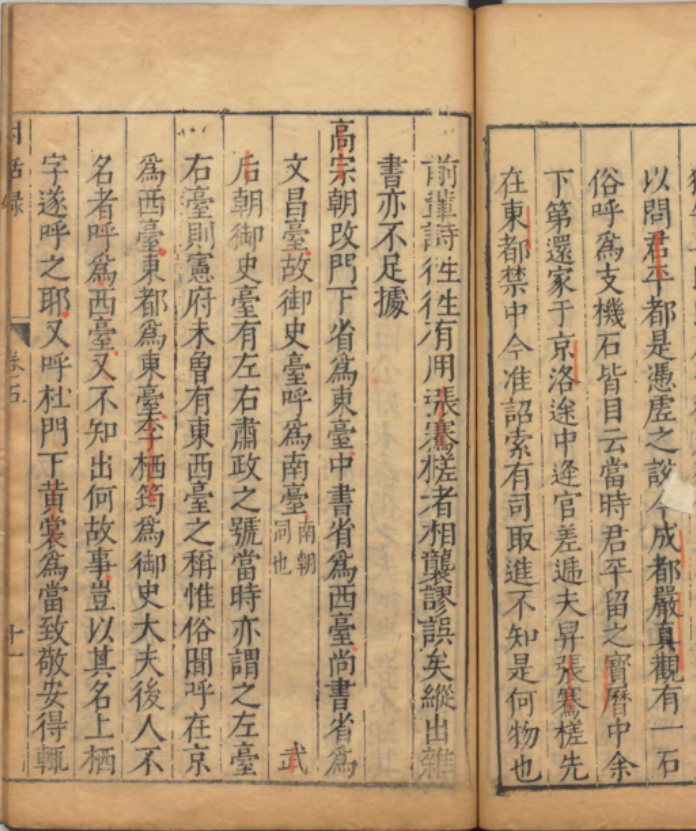 以問君平都是憑虛之說今成都嚴真觀有一石
俗呼爲支機石皆目云當時君平留之寶曆中余
下第還家于京洛途中逢官差遞夫舁張騫槎先
在東都禁中今准詔索有司取進不知是何物也
前輩詩徃徃有用張騫槎者相襲謬誤矣縱出雜
書亦不足據
高宗朝改門下省爲東臺中書省爲西臺尚書省爲
文昌臺故御史臺呼爲南臺南朝同也武
后朝御史臺有左右肅政之號當時亦謂之左臺
右臺則憲府未曾有東西臺之稱惟俗間呼在京
爲西臺東都爲東臺李栖筠爲御史大夫後人不
名者呼爲西臺又不知出何故事豈以其名上栖
字遂呼之耶又呼杜門下黃裳爲當致敬安得輒
話録
卷五
十一